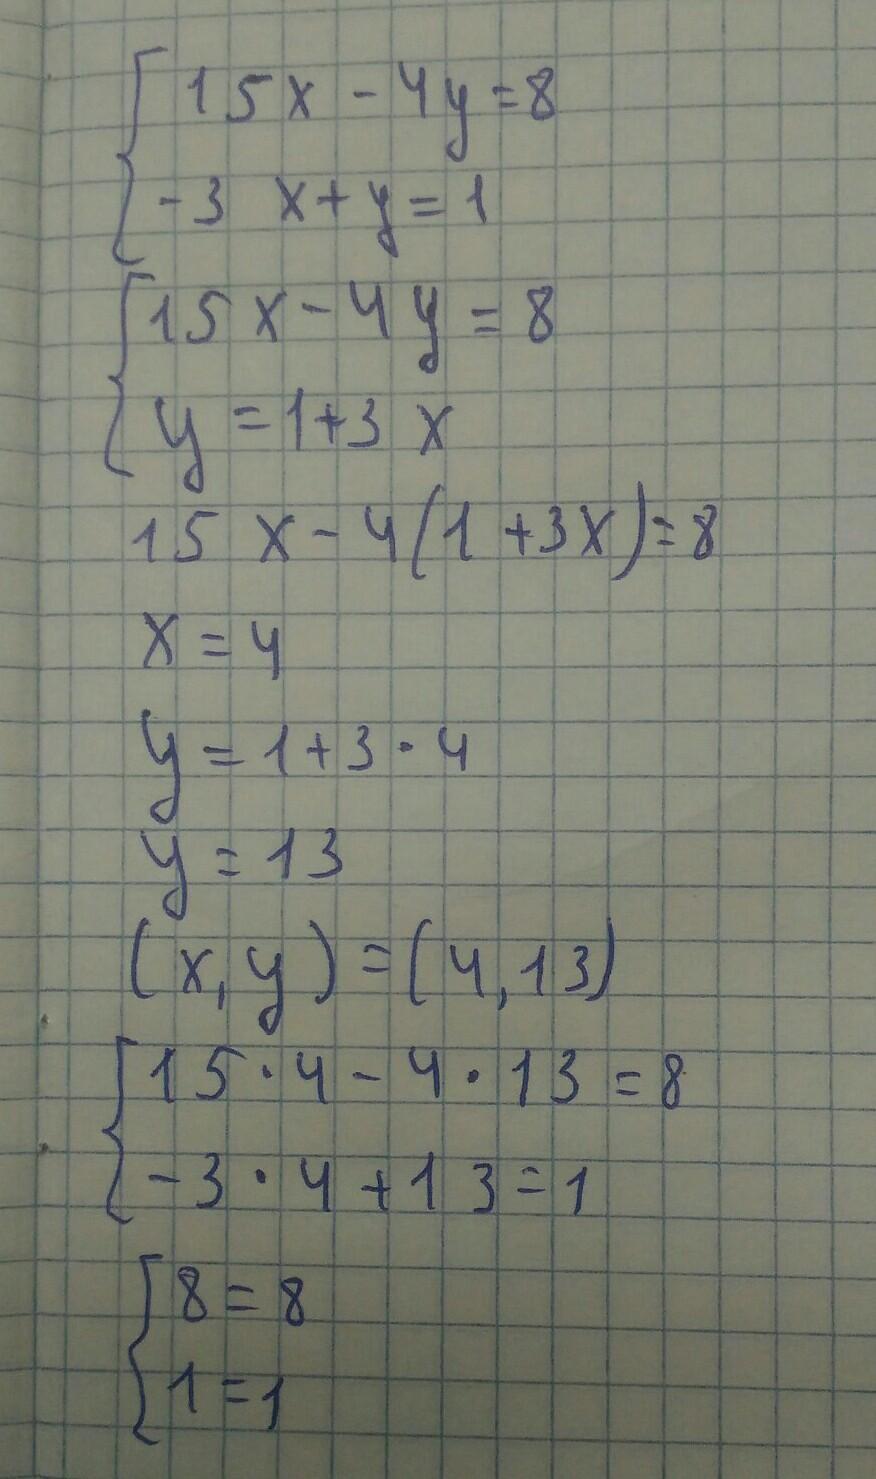 15x - 4y = 8
-3 x + y = 1
15x - 4y = 8
y = 1 + 3 x
15 x - 4(1 + 3x) = 8
x = 4
y = 1 + 3 · 4
y = 13
(x, y) = (4, 13)
15 · 4 - 4 · 13 = 8
-3 · 4 + 13 = 1
8 = 8
1 = 1